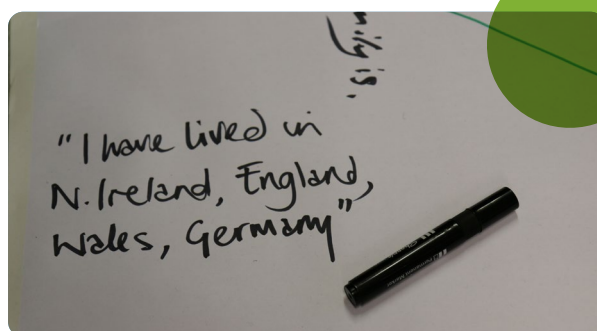 "I have lived in
N. Ireland, England,
Wales, Germany"
mily is.